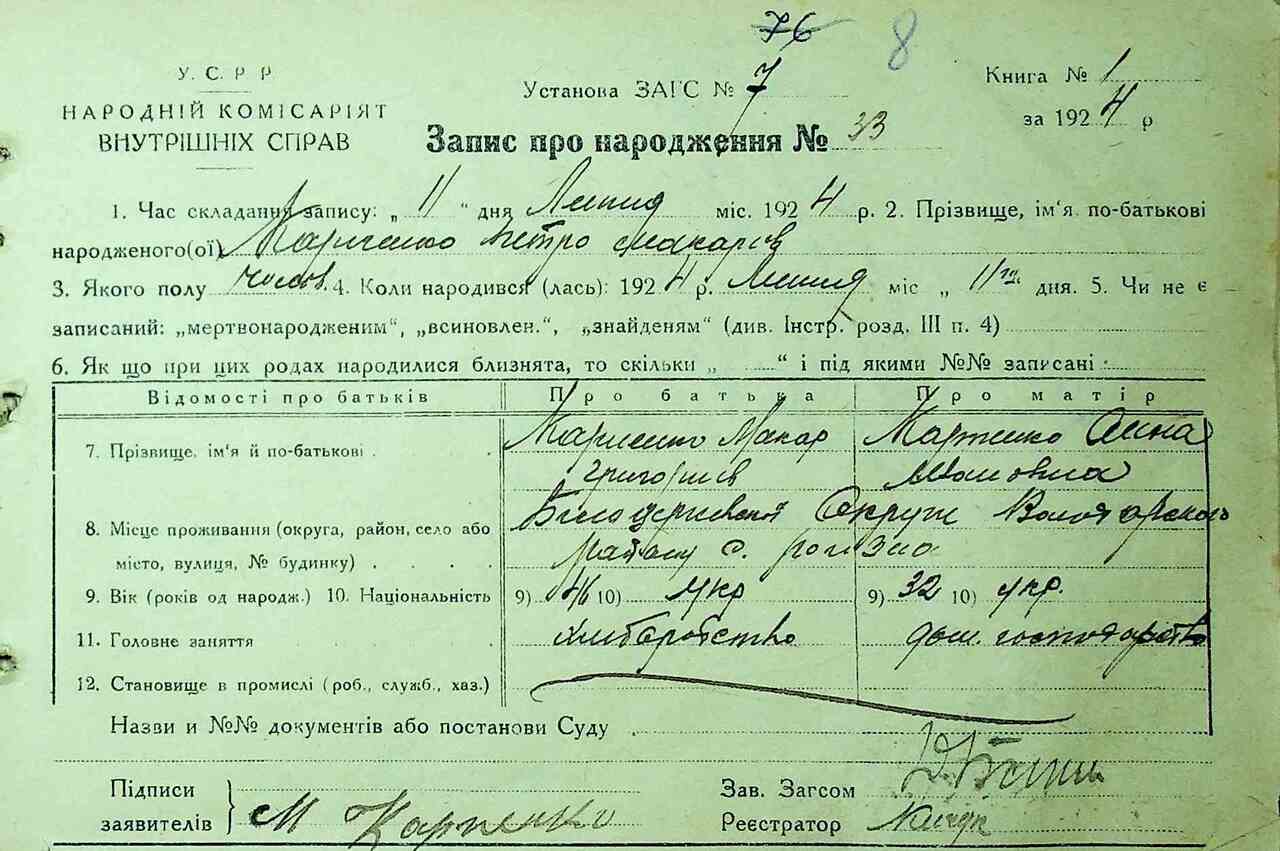 76 8
У. С. Р Р
НАРОДНІЙ КОМІСАРІЯТ
ВНУТРІШНІХ СПРАВ
Установа ЗАГС № 7
Книга № 1
за 1924 р
Запис про народження № 33
1. Час складання запису: „ 11 “ дня Липня міс. 1924 р. 2. Прізвище, ім'я по-батькові
народженого(ої) Карпенко Петро Макарів
3. Якого полу чолов. 4. Коли народився (лась): 1924 р. Липня міс „ 11го дня. 5. Чи не є
записаний: „мертвонародженим“, „всиновлен.“, „знайденям“ (див. Інстр. розд. III п. 4)
6. Як що при цих родах народилися близнята, то скільки „ “ і під якими №№ записані :
Відомості про батьків Про батька Про матір
7. Прізвище, ім'я й по-батькові . Карпенко Макар Карпенко Анна
Григорів
8. Місце проживання (округа, район, село або Білоцерківської Округи Володарського
місто, вулиця, № будинку) . . . . району с.
9. Вік (років од народж.) 10. Національність 9) 46 10) укр 9) 32 10) укр.
11. Головне заняття хліборобство дом. господарство
12. Становище в промислі (роб., служб., хаз.)
Назви и №№ документів або постанови Суду
Підписи
заявителів } М Карпенко
Зав. Загсом
Реєстратор